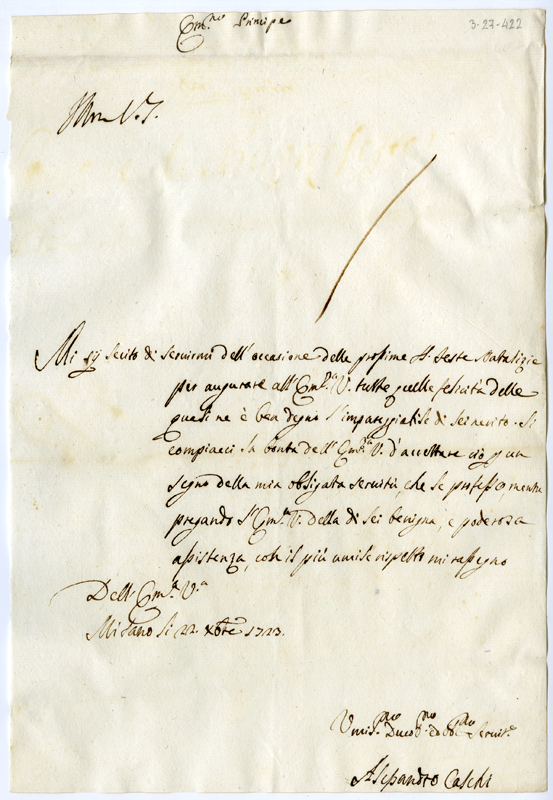 Em.mo Principe
3-27-422
Mi sij lecito di servirmi dell'occasione delle prossime S. Feste Natalizie
per augurare all'Em.za V. tutte quelle felicità delle
quali ne è ben degno l'impareggiabile di lei merito. Si
compiacci la bontà dell'Em.za V. d'accettare ciò p un
segno della mia obligata servitù, che le professo, mentre
pregando l'Em.za V. della di lei benigna, e poderosa
assistenza, con il più umile rispetto mi rassegno
Dell'Em.za V.a
Milano li 22. Xbre 1723.
Umil.mo Devot.mo ed Obl.mo Servit.e
Alessandro Caschi